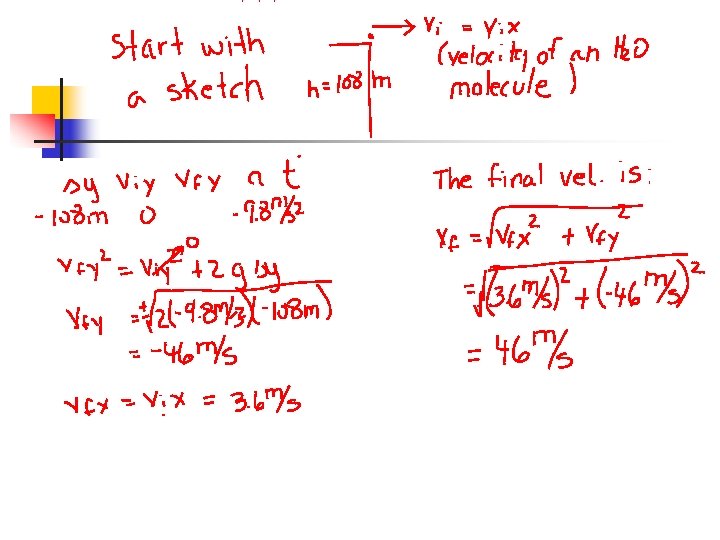 start with
a sketch
h = 108 m
vi = vix
(velocity of an H2O
molecule)
Δy viy vfy a t
-108m 0 -9.8 m/s2
vfy2 = viy2 0 + 2 g Δy
vfy = ±√2(-9.8 m/s2)(-108m)
= -46 m/s
vfx = vix = 3.6 m/s
The final vel. is:
vf = √vfx2 + vfy2
= √(3.6 m/s)2 + (-46 m/s)2
= 46 m/s